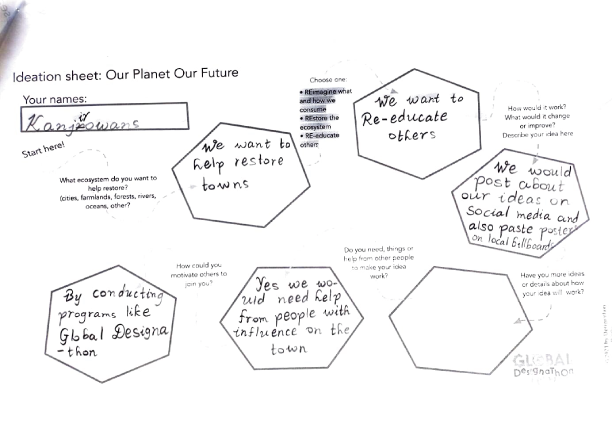 Ideation sheet: Our Planet Our Future
Your names:
Start here!
What ecosystem do you want to
help restore?
(cities, farmlands, forests, rivers,
oceans, other?
We want to
help restore
towns
Choose one:
• REimagine what
and how we
consume
• REstore the
ecosystem
• RE-educate
others
We want to
Re-educate
others
How would it work?
What would it change
or improve?
Describe your idea here
We would
post about
our ideas on
Social media and
also paste poster
on local billboards
Have you more ideas
or details about how
your idea will work?
Do you need, things or
help from other people
to make your idea
work?
Yes we wo-
uld need help
from people with
influence on the
town
How could you
motivate others to
join you?
By conducting
programs like
Global Designa
-thon
GLOBAL
DesignaThon